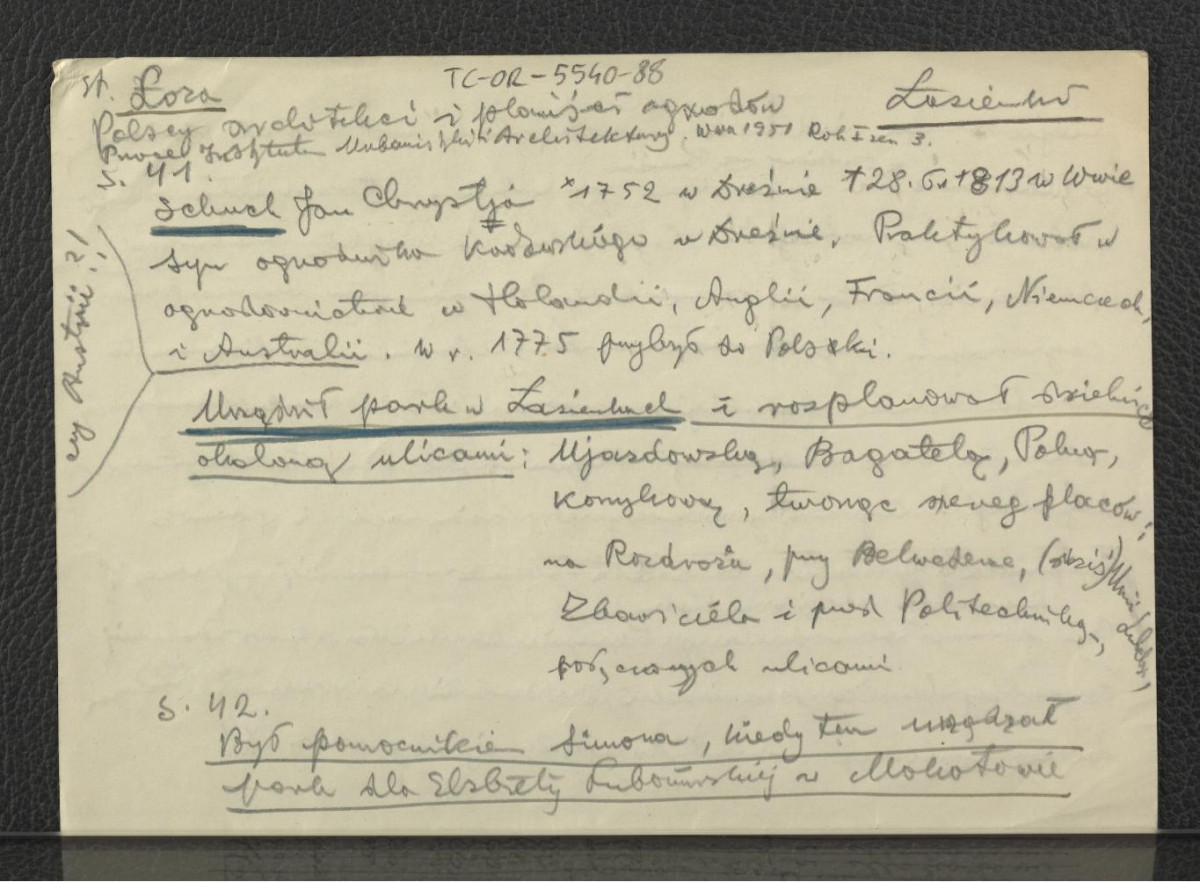 TC-OR-5540-88
St. Łoza
Łazienki
Polscy architekci i planiści ogrodów
Prace Instytutu Urbanistyki i Architektury. Wwa 1951 Rok I zesz 3.
s. 41.
Schuch Jan Chrystja *1752 w Dreźnie †28.6.1813 w Wwie
syn ogrodnika w Dreźnie, Praktykował w
ogrodownictwie w Holandii, Anglii, Francii, Niemczech,
i Australii. W r. 1775 przybył do Polski.
czy Austrii?!
Urządził park w Łazienkach i rozplanował dzielnicę
okoloną ulicami: Ujazdowską, Bagatelą, Polną,
Koszykową, tworząc szereg placów;
na Rozdrożu, przy Belwederze, (dziś) Unii Lubel,
Zbawiciela i przed Politechniką,
połączonych ulicami
s. 42.
Był pomocnikiem Simona, kiedy ten urządzał
park dla Elżbiety Lubomirskiej w Mokotowie